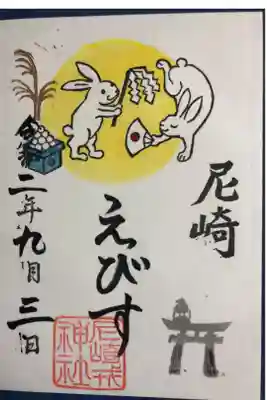 尼崎
えびす
令和二年九月三日
尼崎戎
神社